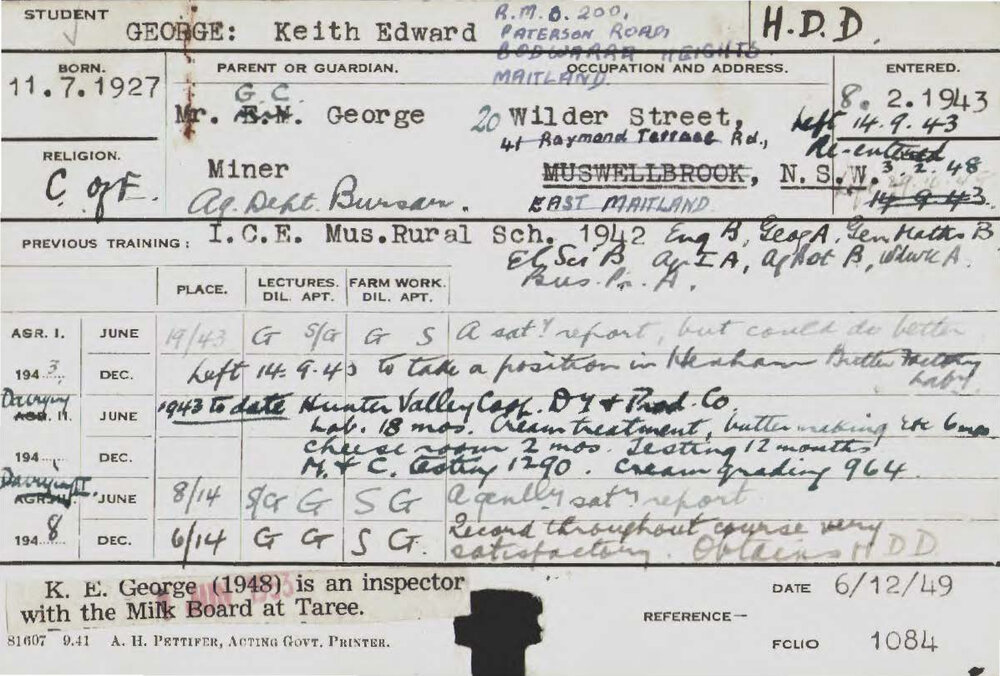 STUDENT
GEORGE: Keith Edward
R.M.B. 200,
PATERSON ROAD,
HEIGHTS
MAITLAND
H.D.D.
BORN.
11.7.1927
PARENT OR GUARDIAN.
G C.
Mr. E.W. George
OCCUPATION AND ADDRESS.
20 Wilder Street,
41 Raymond Terrace Rd.,
ENTERED.
8. 2.1943
Left 14.9.43
Re-entered
3. 2. 48
14.9.43.
RELIGION.
C of E.
Miner
MUSWELLBROOK, N.S.W.
Ag. Dept. Bursar.
EAST MAITLAND
PREVIOUS TRAINING: I.C.E. Mus.Rural Sch. 1942 Eng B, Geog A, Gen Maths B
El Sci B Ag I A, Ag Bot B, Wdwk A.
Bus. Pr. A.
PLACE.
LECTURES.
DIL. APT.
FARM WORK.
DIL. APT.
AGR. I. JUNE 19/43 G S/G G S A saty report, but could do better
194 3 DEC. Left 14.9.43 to take a position in Hexham Butter Factory
Laby.
Dairying
AGR. II. JUNE 1943 to date Hunter Valley Coop. Dy & Prod. Co
Lab. 18 mos. Cream treatment, butter making etc 6 mos.
194 DEC. cheese room 2 mos. Testing 12 months
M. & C. testing 1290. Cream grading 964.
Dairying II.
AGR. III. JUNE 8/14 S/G G S G A genlly saty report
194 8 DEC. 6/14 G G S G. Record throughout course very
satisfactory. Obtains HDD
K. E. George (1948) is an inspector
with the Milk Board at Taree.
DATE 6/12/49
REFERENCE—
FOLIO 1084
81607 9.41 A. H. PETTIFER, ACTING GOVT. PRINTER.